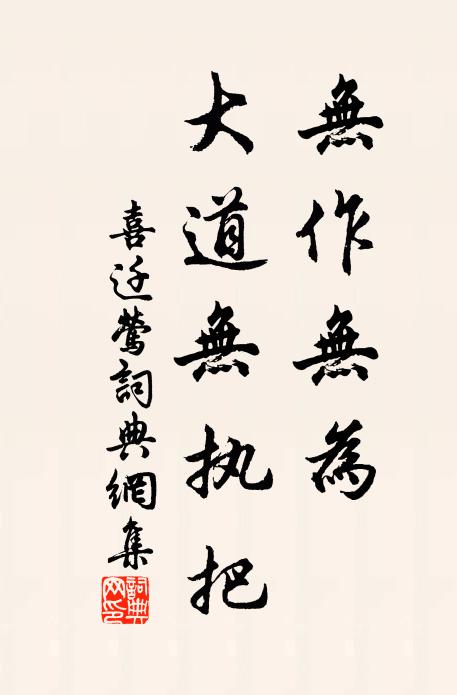 無作無為
大道無执把
喜迁鶯詞典網集
詞典网印